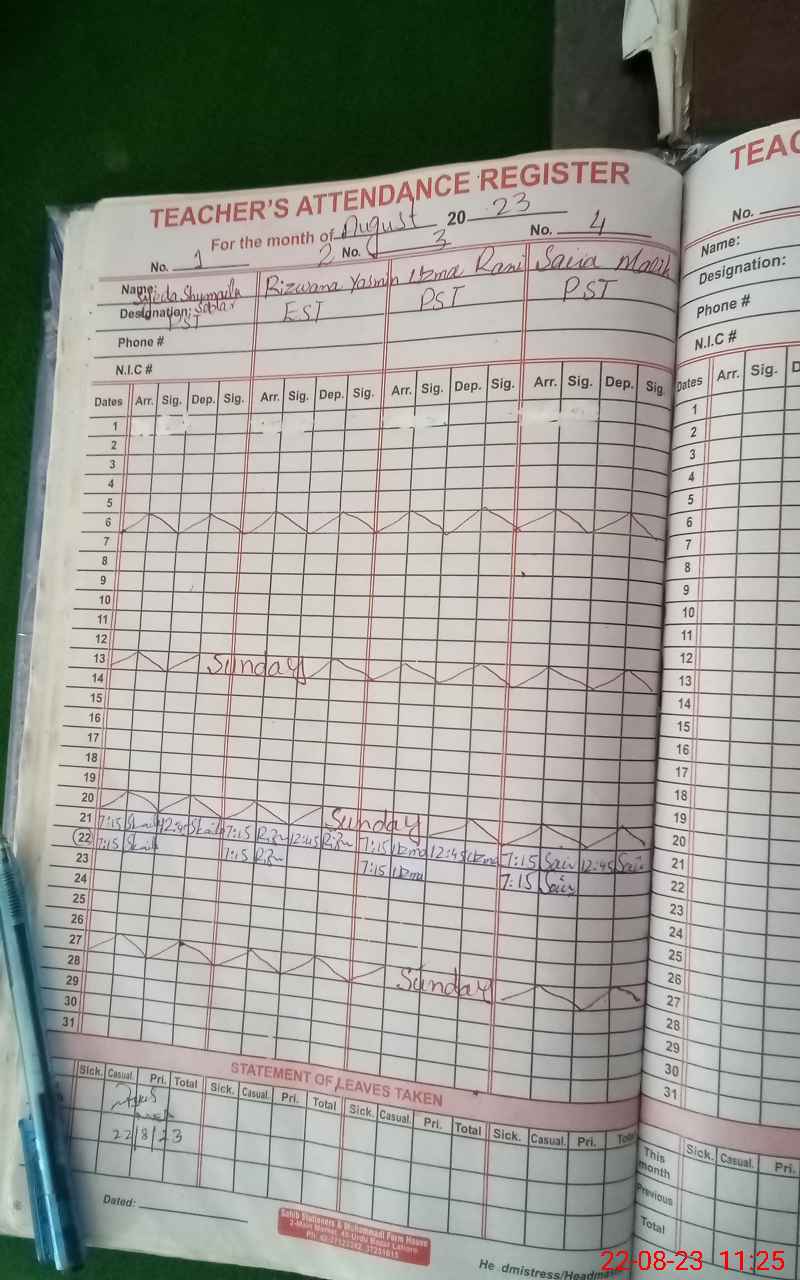 TEACHER'S ATTENDANCE REGISTER
For the month of August 20 23
No. 1 2 No. 3 No. 4
Name: Syeda Shumaila Rizwana Yasmin Uzma Rani Saira Malik
Designation: Sabir EST PST PST
PST
Phone #
N.I.C #
Dates Arr. Sig. Dep. Sig. Arr. Sig. Dep. Sig. Arr. Sig. Dep. Sig. Arr. Sig. Dep. Sig.
1
2
3
4
5
6
7
8
9
10
11
12
13 Sunday
14
15
16
17
18
19
20 Sunday
21 7:15 12:45 7:15 12:45 7:15 Uzma 12:45 Uzma 7:15 Sair 12:45 Sair
22 7:15 7:15 7:15 Uzma 7:15 Sair
23
24
25
26
27 Sunday
28
29
30
31
STATEMENT OF LEAVES TAKEN
Sick. Casual. Pri. Total Sick. Casual. Pri. Total Sick. Casual. Pri. Total Sick. Casual. Pri. Total
22/8/23
Dated:
Sahib Stationers & Muhammadi Form House
2-Main Market, 40-Urdu Bazar Lahore
He dmistress/Headma
TEAC
No.
Name:
Designation:
Phone #
N.I.C #
Dates Arr. Sig. D
1
2
3
4
5
6
7
8
9
10
11
12
13
14
15
16
17
18
19
20
21
22
23
24
25
26
27
28
29
30
31
Sick. Casual. Pri.
This
month
Previous
Total
22-08-23 11:25